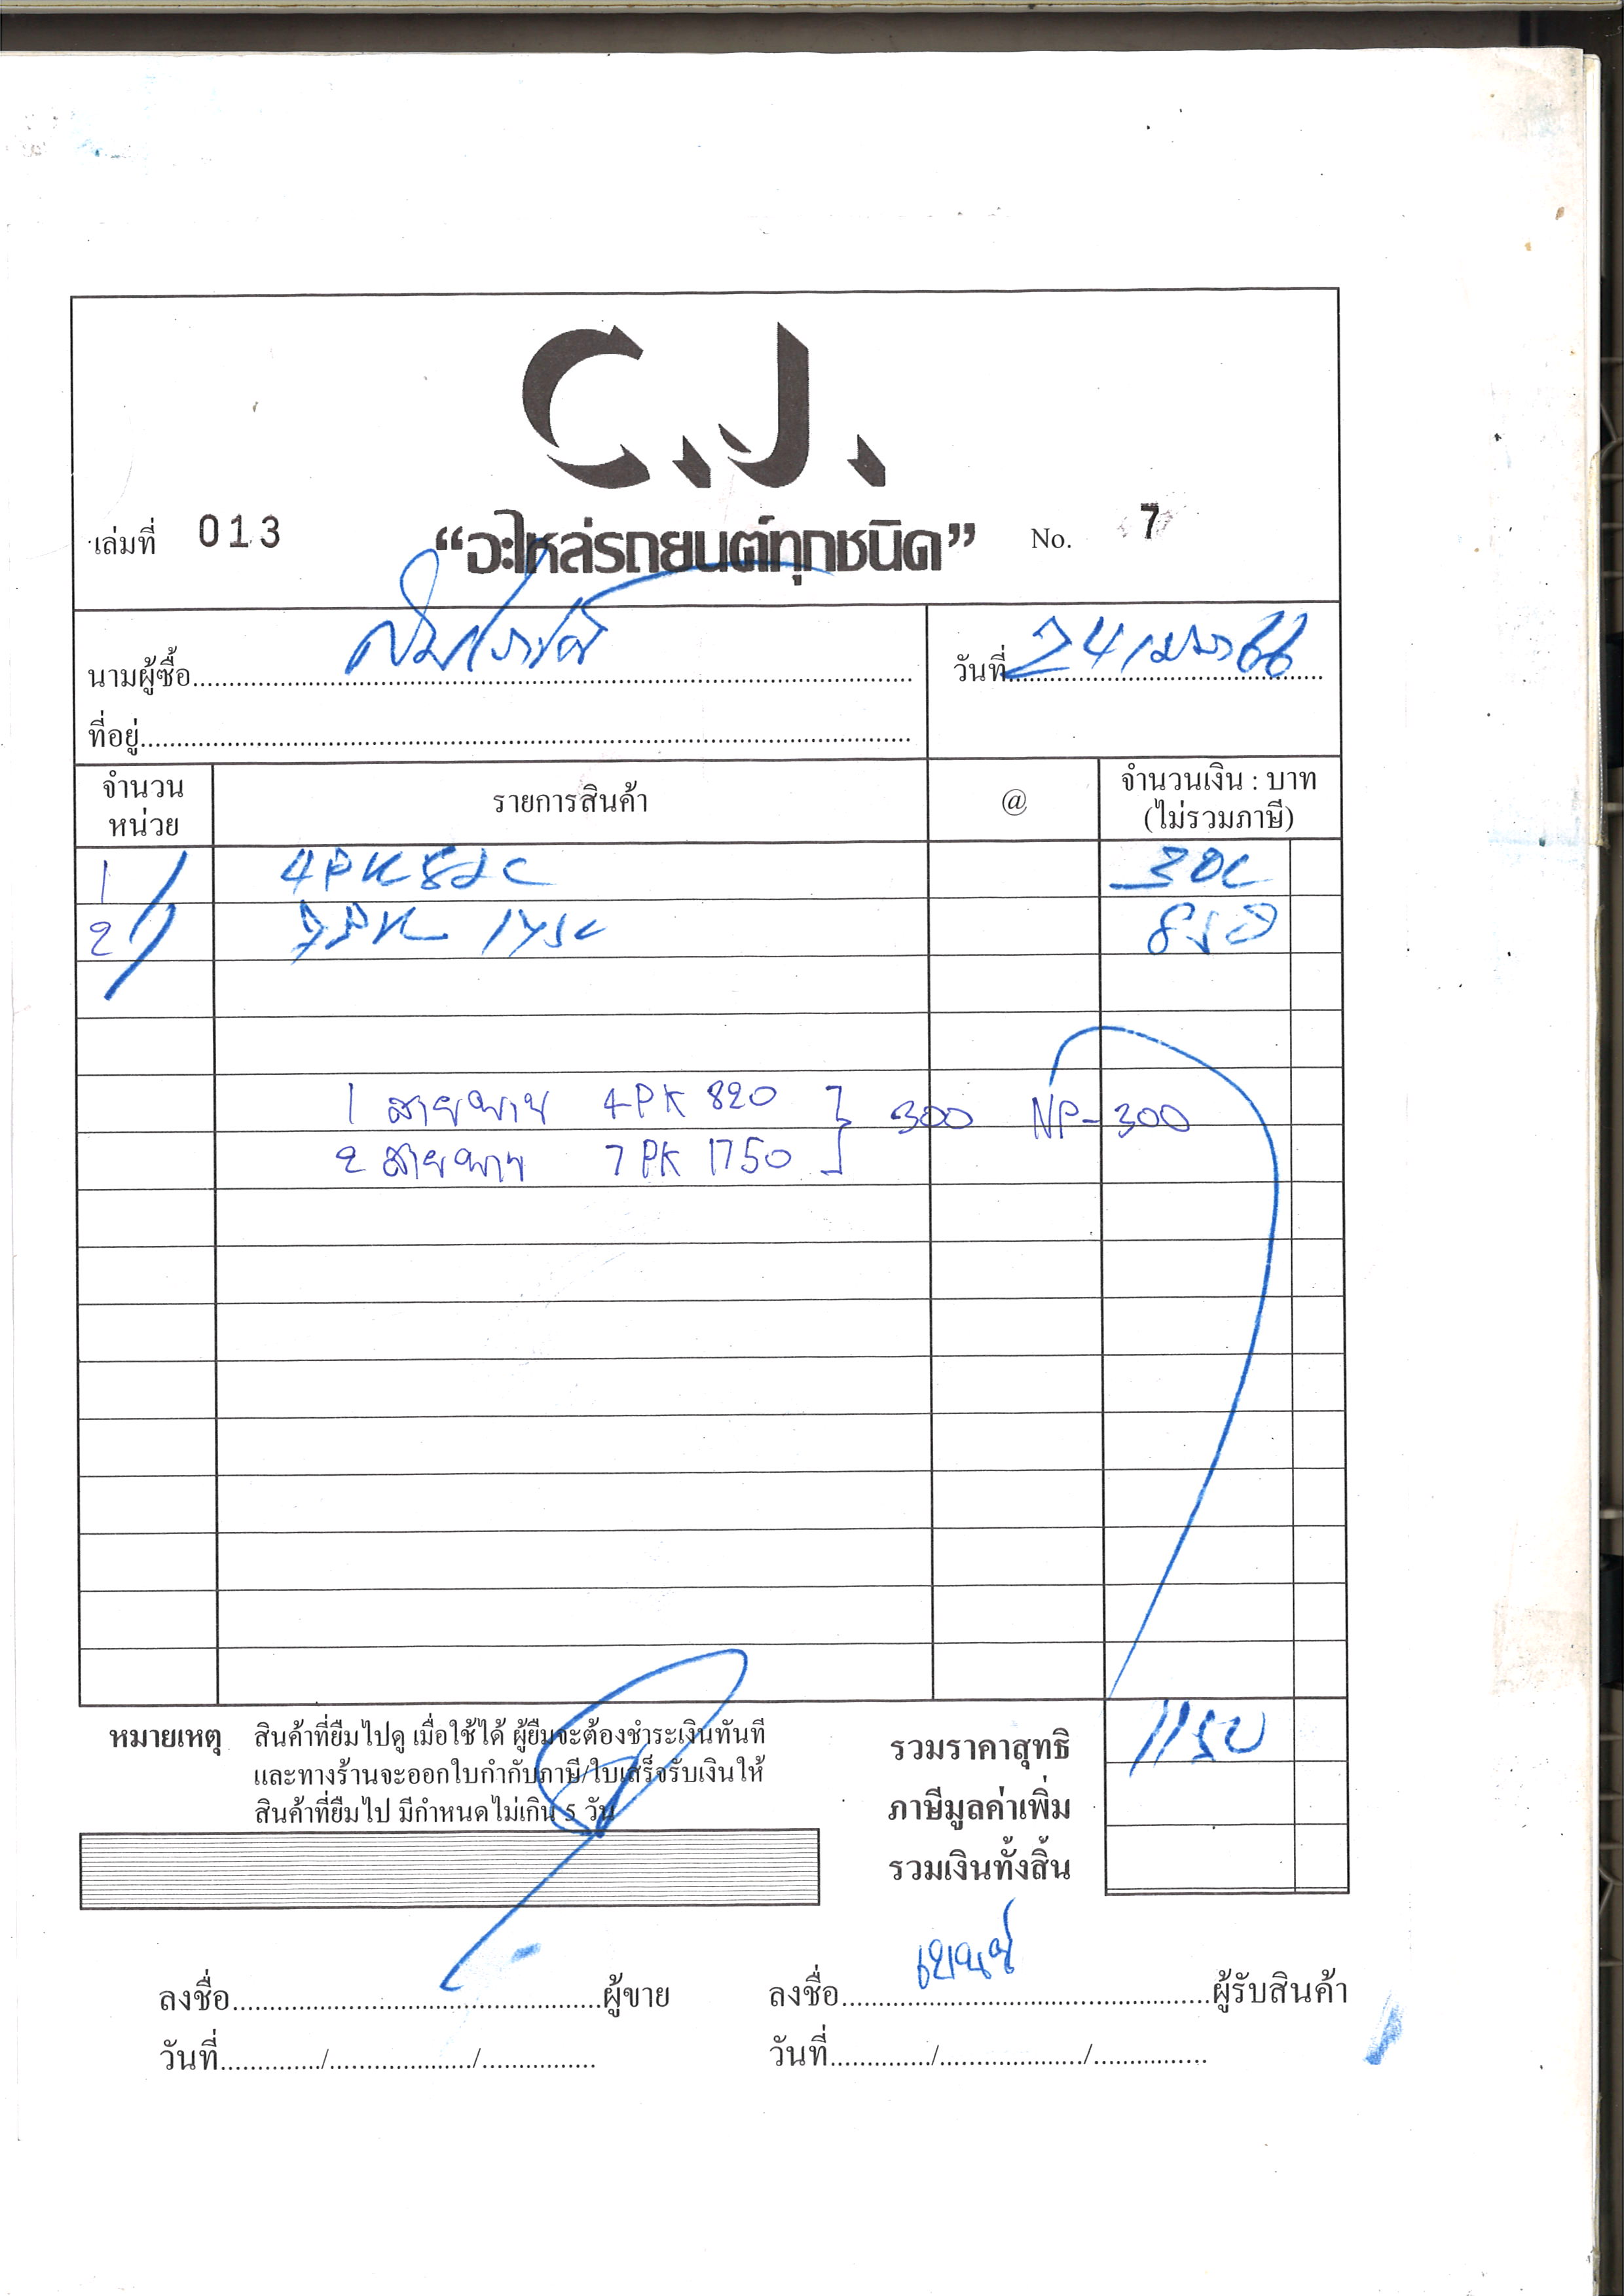 C.J.
เล่มที่ 013 “อะไหล่รถยนต์ทุกชนิด” No. 7
นามผู้ซื้อ
วันที่ 24 เมษา 66
ที่อยู่
จำนวน หน่วย รายการสินค้า @ จำนวนเงิน : บาท (ไม่รวมภาษี)
1 4PK 820 300
2 7PK 1750 850
1 สายพาน 4PK 820 } 300 NP-300
2 สายพาน 7PK 1750
หมายเหตุ สินค้าที่ยืมไปดู เมื่อใช้ได้ ผู้ยืมจะต้องชำระเงินทันที
และทางร้านจะออกใบกำกับภาษี/ใบเสร็จรับเงินให้
สินค้าที่ยืมไป มีกำหนดไม่เกิน 5 วัน
รวมราคาสุทธิ 1150
ภาษีมูลค่าเพิ่ม
รวมเงินทั้งสิ้น
ลงชื่อ ผู้ขาย ลงชื่อ ผู้รับสินค้า
วันที่ / / วันที่ / /